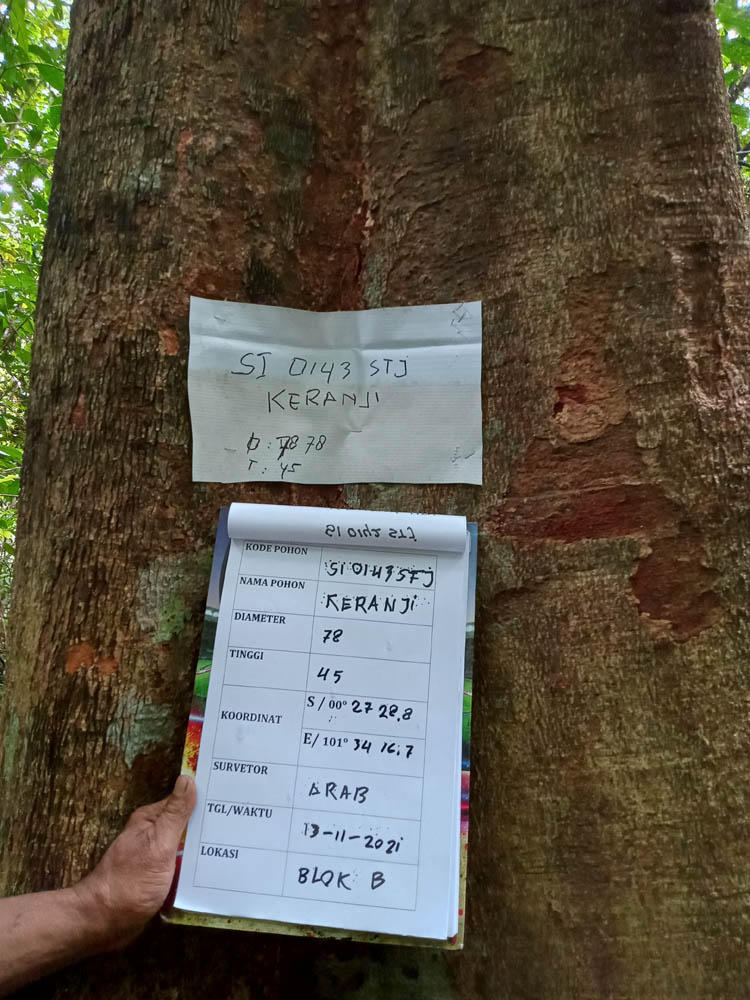 SI 0143 STJ
KERANJI
D : 78 78
T : 45
KODE POHON SI 0143 STJ
NAMA POHON KERANJI
DIAMETER 78
TINGGI 45
KOORDINAT S / 00° 27 28,8
E/ 101° 34 16,7
SURVETOR ARAB
TGL/WAKTU 13-11-2021
LOKASI BLOK B